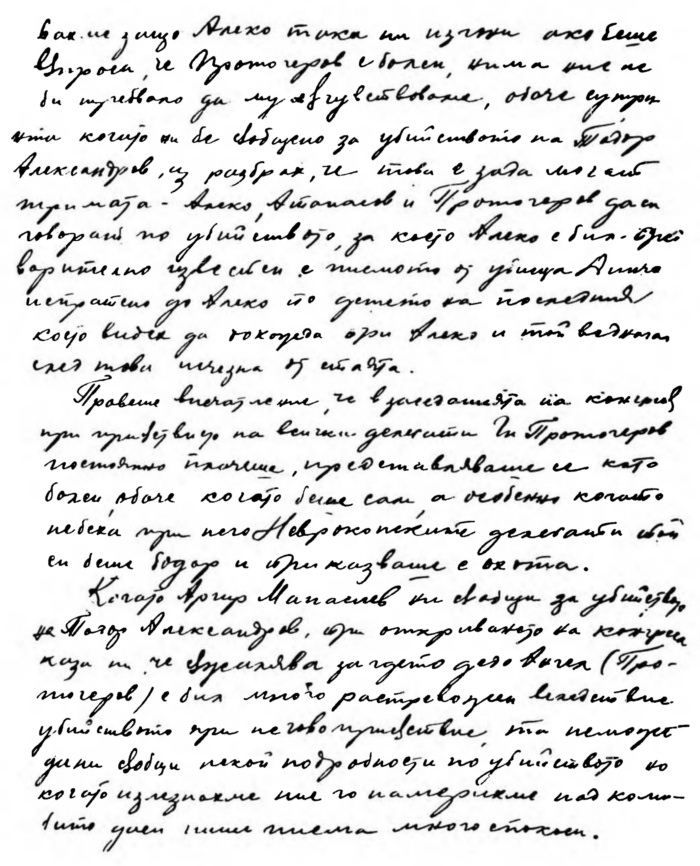 защо Алеко така ни изгони ако беше
въпроса, че Протогеров е болен, нима ние не
би трябвало да му съчувствоваме, обаче сутрин
ята когато ни бе съобщено за убийството на Тодор
Александров, аз разбрах, че това е за да могат
тримата - Алеко, Атанасов и Протогеров да си
говорат по убийството, за което Алеко е бил пред
варително известен с писмото от убиеца Динчо
испратено до Алеко по детето на последния
което видех да дохожда при Алеко и той веднага
след това исчезна от стаята.
Правеше впечатление, че в заседанията на конгреса
при присъствието на всички делегати Ген Протогеров
постоянно плачеше, представляваше се като
болен, обаче когато беше сам, а особенно когато
небеха при него Неврокопските делегати той
си беше бодър и приказваше с охота.
Когато Аргир Манасиев ни съобщи за убийството
на Тодор Александров, при откриването на конгреса
каза ни че съжалява загдето дедо Ангел (Про-
тогеров) е бил много растревожен вследствие
убийството при негово присъствие, та неможе
да ни съобщи некои подробности по убийството но
когато излезнахме ние го намерихме под
да си пише писма много спокоен.